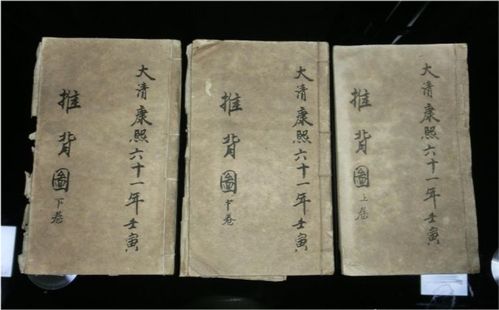 大清康熙六十一年壬寅
推背圖上卷
大清康熙六十一年壬寅
推背圖中卷
大清康熙六十一年壬寅
推背圖下卷